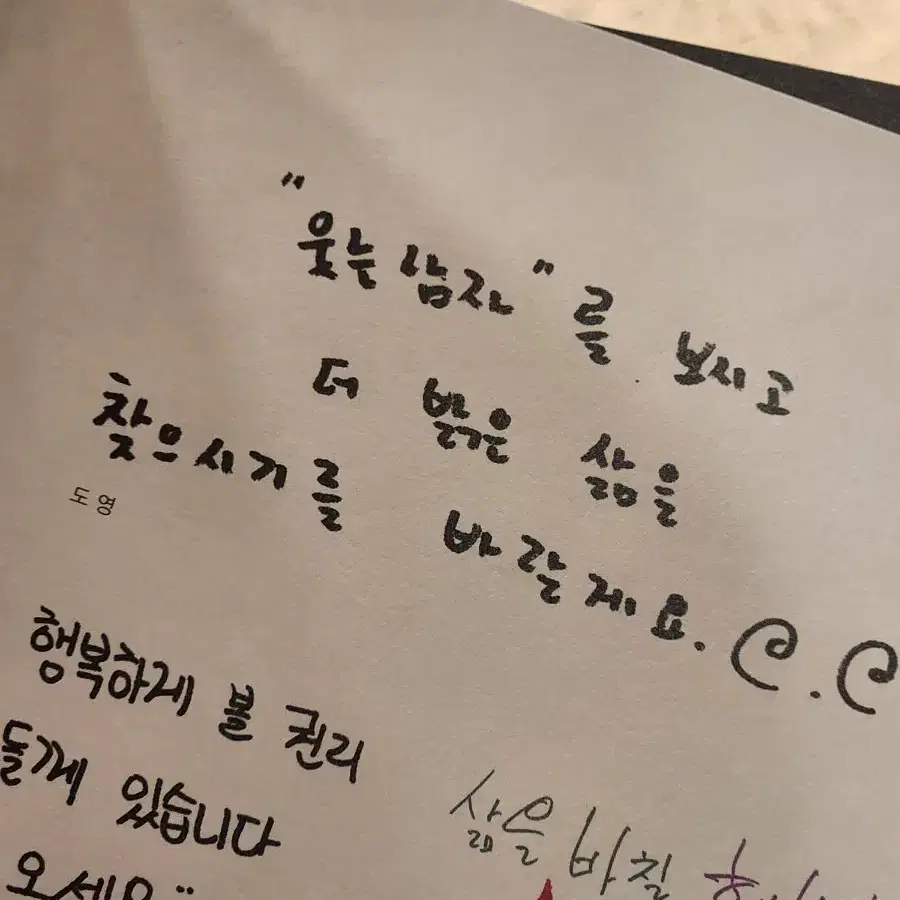 "웃는 남자"를 보시고
더 밝은 삶을
찾으시기를 바랄게요. @.@
도영
행복하게 볼 권리
들께 있습니다
오세요"
삶을 바칠